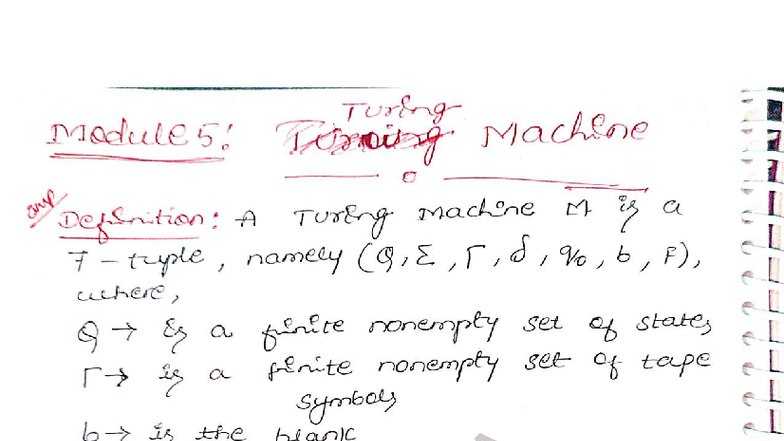 Module 5: Turing Machine
imp
Definition: A Turing Machine M is a
7-tuple, namely (Q, Σ, Γ, δ, q0, b, F),
where,
Q → is a finite nonempty set of states
Γ → is a finite nonempty set of tape
symbols
b → is the blank